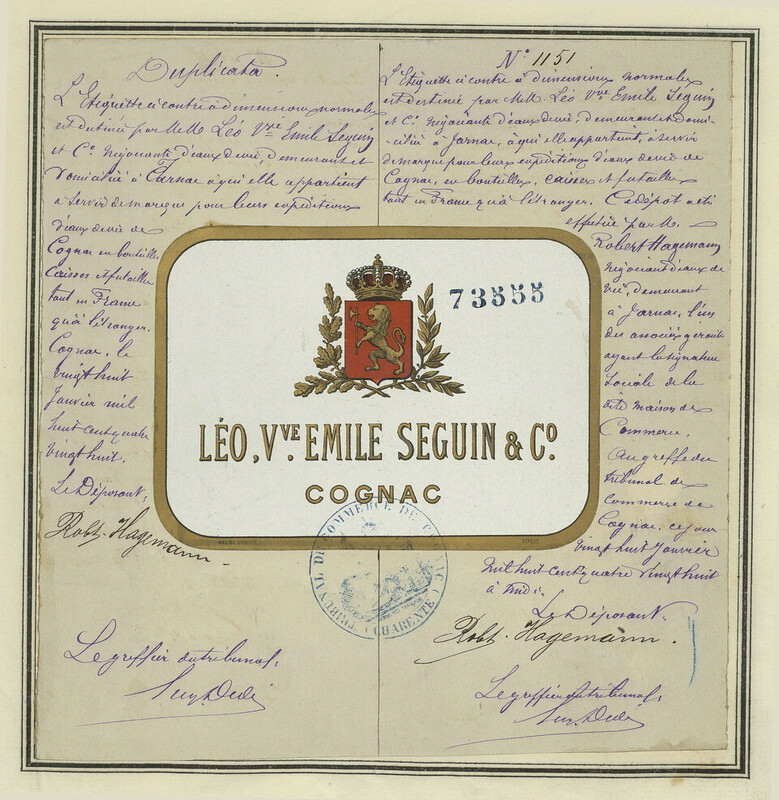 Duplicata.
L'Etiquette ci contre à dimensions normales
est destinée par M.M. Léo Vve Emile Seguin
et Co. Négociants d'eaux de vie, demeurant et
domicilié à Jarnac à qui elle appartient
à servir de marque pour leurs expéditions
d'eaux de vie de
Cognac en bouteilles
Caisses et futailles
tant en France
qu'à l'étranger.
Cognac, le
vingt huit
Janvier mil
huit cent quatre
vingt huit.
Le Déposant,
Robt. Hagemann
Le greffier du tribunal,
No. 1151
L'Etiquette ci contre à dimensions normales
est destinée par M.M. Léo Vve Emile Seguin
et Co. Négociants d'eaux de vie, demeurant et domi-
cilié à Jarnac, à qui elle appartient, à servir
de marque pour leurs expéditions d'eaux de vie de
Cognac, en bouteilles, caisses et futailles
tant en France qu'à l'étranger. Ce dépôt a été
effectué par M.
Robert Hagemann
négociant d'eaux de
vie, demeurant
à Jarnac, l'un
des associés gérants
ayant la signature
sociale de la
dite maison de
Commerce.
au greffe du
tribunal de
commerce de
Cognac, ce jour
vingt huit Janvier
mil huit cent quatre vingt huit
à midi
Le Déposant,
Robt. Hagemann.
Le greffier du tribunal,
73555
LÉO, VVE. EMILE SEGUIN & CO.
COGNAC
TRIBUNAL DE COMMERCE DE COGNAC (CHARENTE)